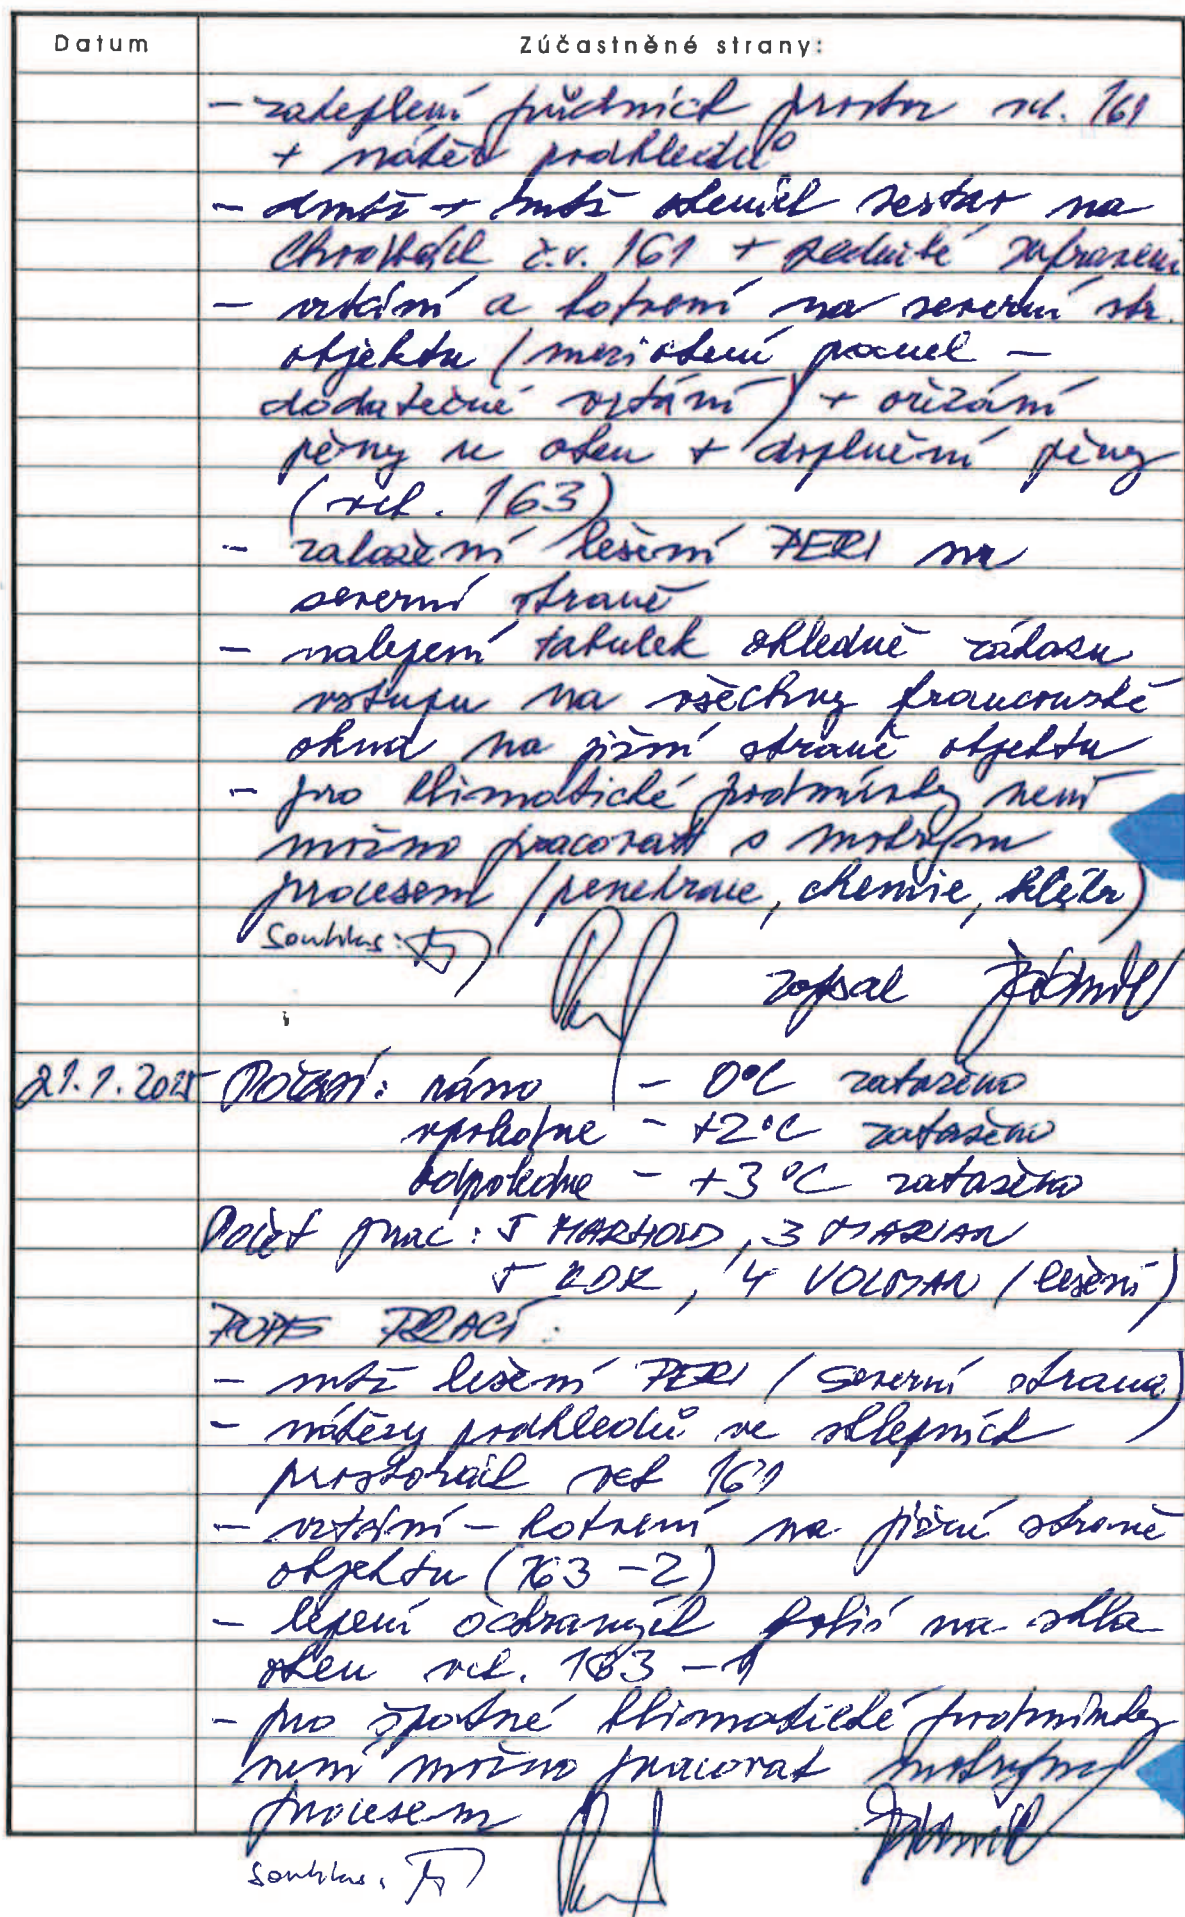 Datum
Zúčastněné strany:
- zateplení půdních prostor vch. 161
+ nátěr podhledů
- dmtž + mtž okenních sestav na
chodbách č.v. 161 + zednické zapravení
- vrtání a kotvení na severní str.
objektu (meziokenní panel -
dodatečné vrtání) + ořezání
pěny u oken + doplnění pěny
(vch. 163)
- založení lešení PERI na
severní straně
- nalepení tabulek ohledně zákazu
vstupu na všechny francouzské
okna na jižní straně objektu
- pro klimatické podmínky není
možno pracovat s mokrým
procesem (penetrace, chemie, )
Souhlas:
zapsal
21.1.2025
Počasí: ráno - 0°C zataženo
vpoledne - +2°C zataženo
odpoledne - +3°C zataženo
Počet prac: 5 MARHOLD, 3 MARIAN
5 KDK, 4 VOLMAN (lešení)
POPIS PRACÍ:
- mtž lešení PERI (severní strana)
- nátěry podhledů ve sklepních
prostorách vch 161
- vrtání - kotvení na jižní straně
objektu (163 - 2)
- lepení ochraných folií na skla
oken vch. 163 - 1
- pro špatné klimatické podmínky
není možno pracovat mokrým
procesem
Souhlas: